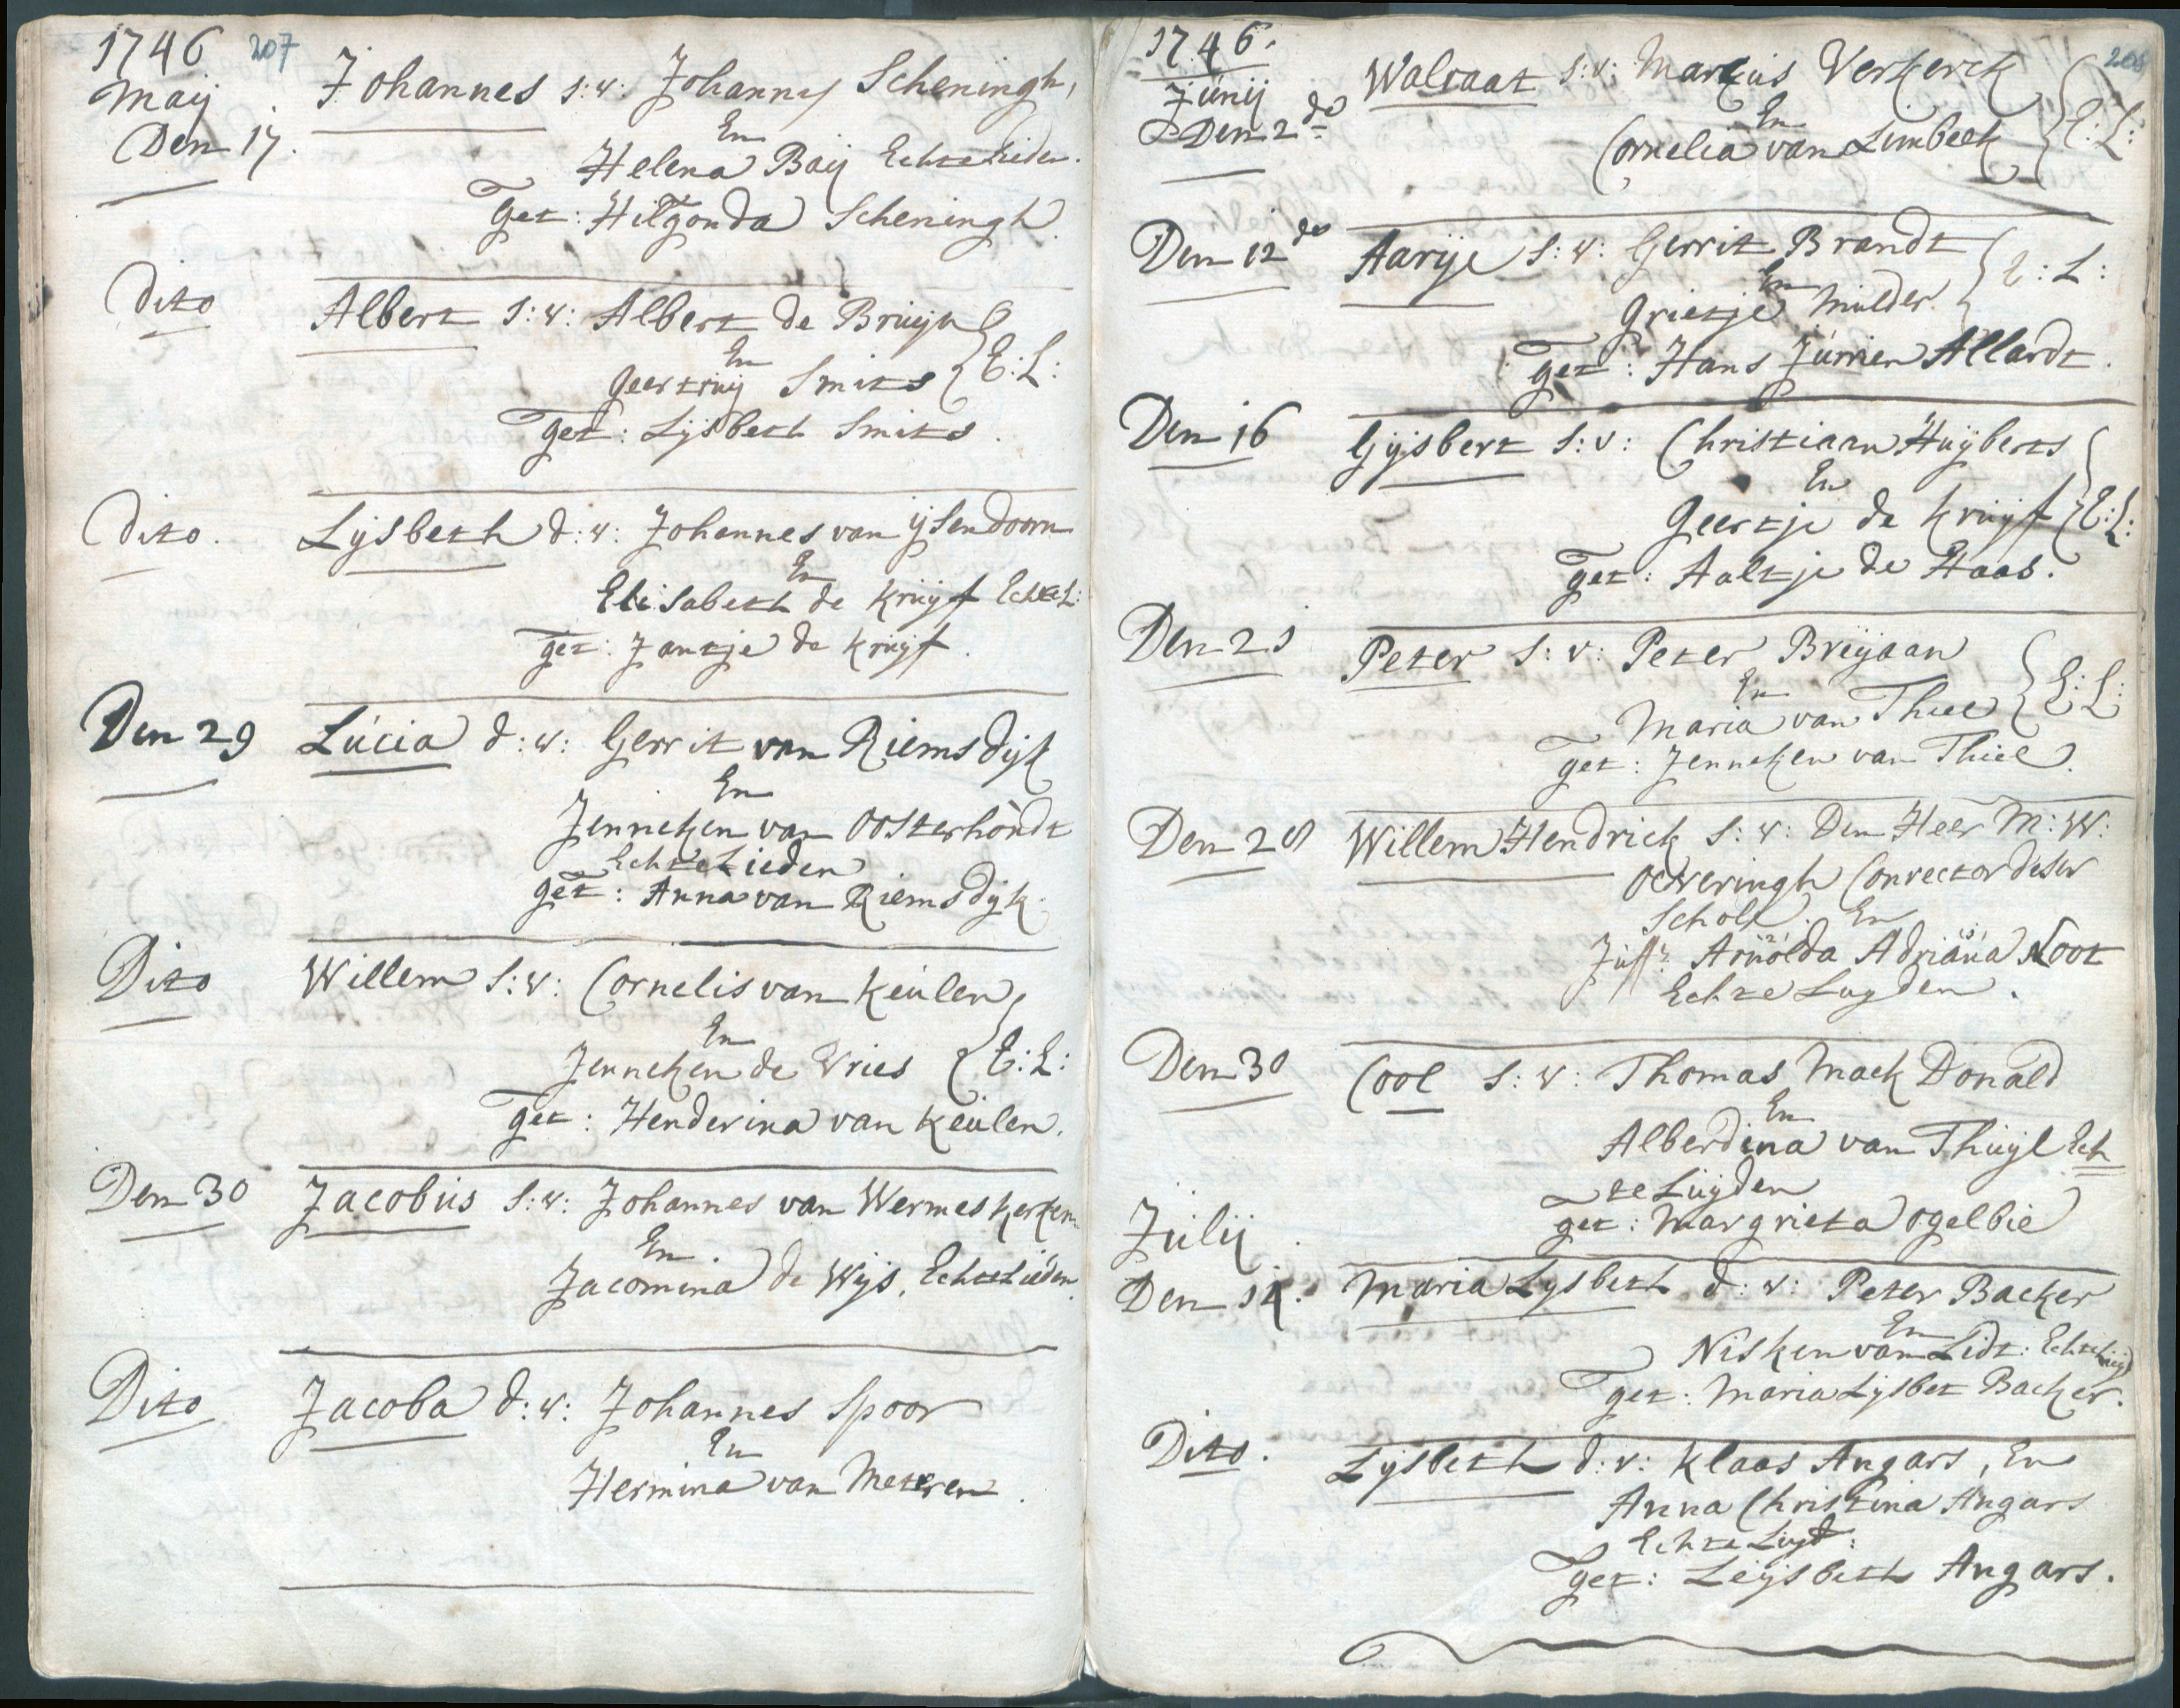 1746 207
Maij
Den 17. Johannes s:v: Johannes Scheningh,
En
Helena Baij Echte Lieden.
Get: Hilgonda Scheningh.
Dito Albert s:v: Albert de Bruijn
En
Geertruij Smits E:L:
Get: Lijsbeth Smits.
Dito. Lijsbeth d:v: Johannes van ijsendoorn
En
Elisabeth de Kruijf Echte L:
get: Jantje de Kruijf.
Den 29 Lúcia d:v: Gerrit van Riemsdijk
En
Jenneken van Oosterhoudt
Echte Lieden
get: Anna van Riemsdijk.
Dito Willem s:v: Cornelis van Keulen,
En
Jenneken de Vries E:L:
get: Henderina van Keulen.
Den 30 Jacobus s:v: Johannes van Wermeskerken
En
Jacomina de Wijs, Echte Lieden.
Dito Jacoba d:v: Johannes Spoor
En
Hermina van Meteren.
1746. 208
Junij
Den 2de Walraat s:v: Marcus Verkerck
En
Cornelia van Limbeek E:L:
Den 12de Aarije s:v: Gerrit Brandt
En E:L:
Grietje Mulder.
get: Hans Jurrien Allardt.
Den 16 Gijsbert s:v: Christiaan Huijberts
En
Geertje de Kruijf E:L:
get: Aaltje de Haas.
Den 21 Peter s:v: Peter Breijaan
En
Maria van Thiel E:L:
get: Jenneken van Thiel.
Den 28 Willem Hendrick s:v: Den Heer M:W:
Oeveringh Conrector deser
School. En
Juffr. Arnolda Adriana Noot
Echte Luyden.
Den 30 Cool s:v: Thomas Mack Donald
En
Alberdina van Thuijl Ech
te Luijden
get: Margrieta Ogelbie
Julij
Den 14. Maria Lysbeth d:v: Peter Backer
En
Nisken van Lidt: Echte Luijd
get: Maria Lijsbet Backer.
Dito. Lijsbeth d:v: Klaas Angars, En
Anna Christina Angars
Echte Luyd:
get: Leijsbeth Angars.